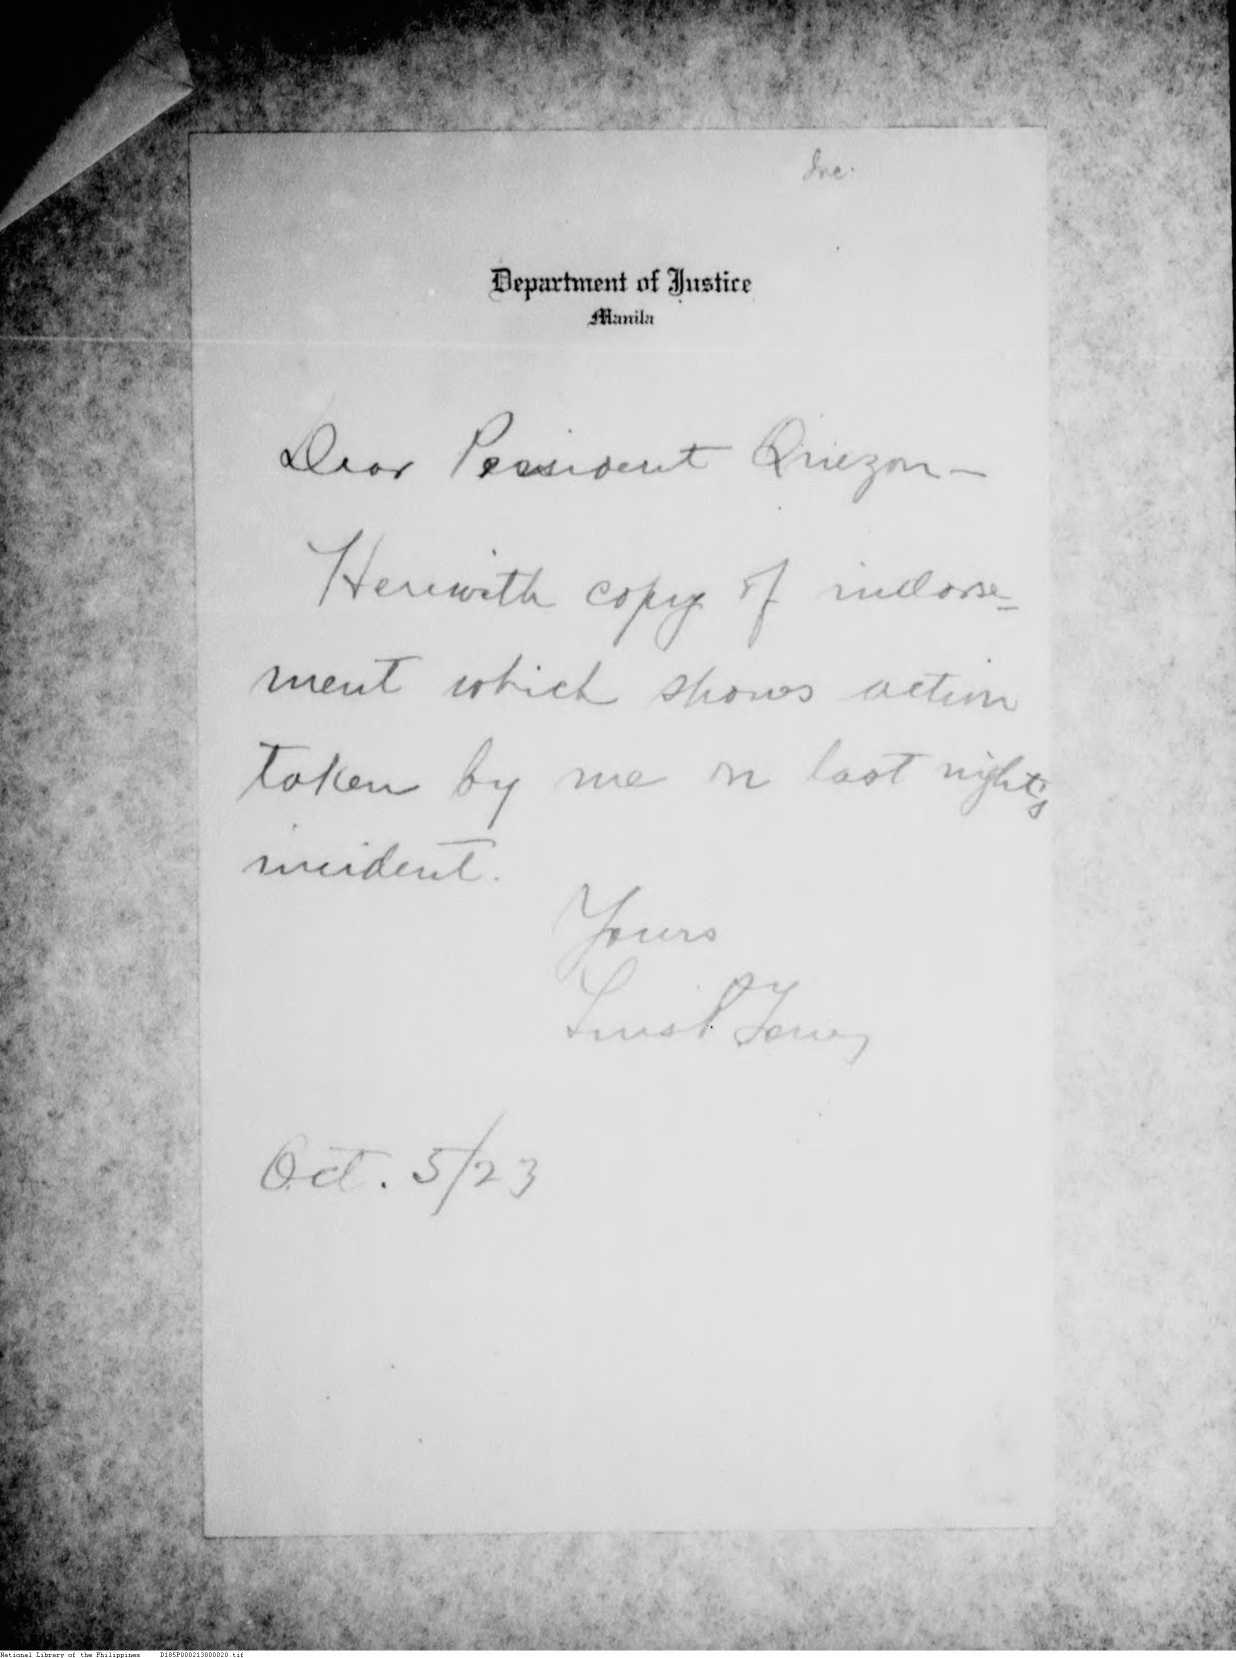 Inc.
Department of Justice
Manila
Dear President Quezon —
Herewith copy of indorse-
ment which shows action
taken by me on last night's
incident.
Yours
Luis P. Torres
Oct. 5/23
National Library of the Philippines D185P000213000020.tif